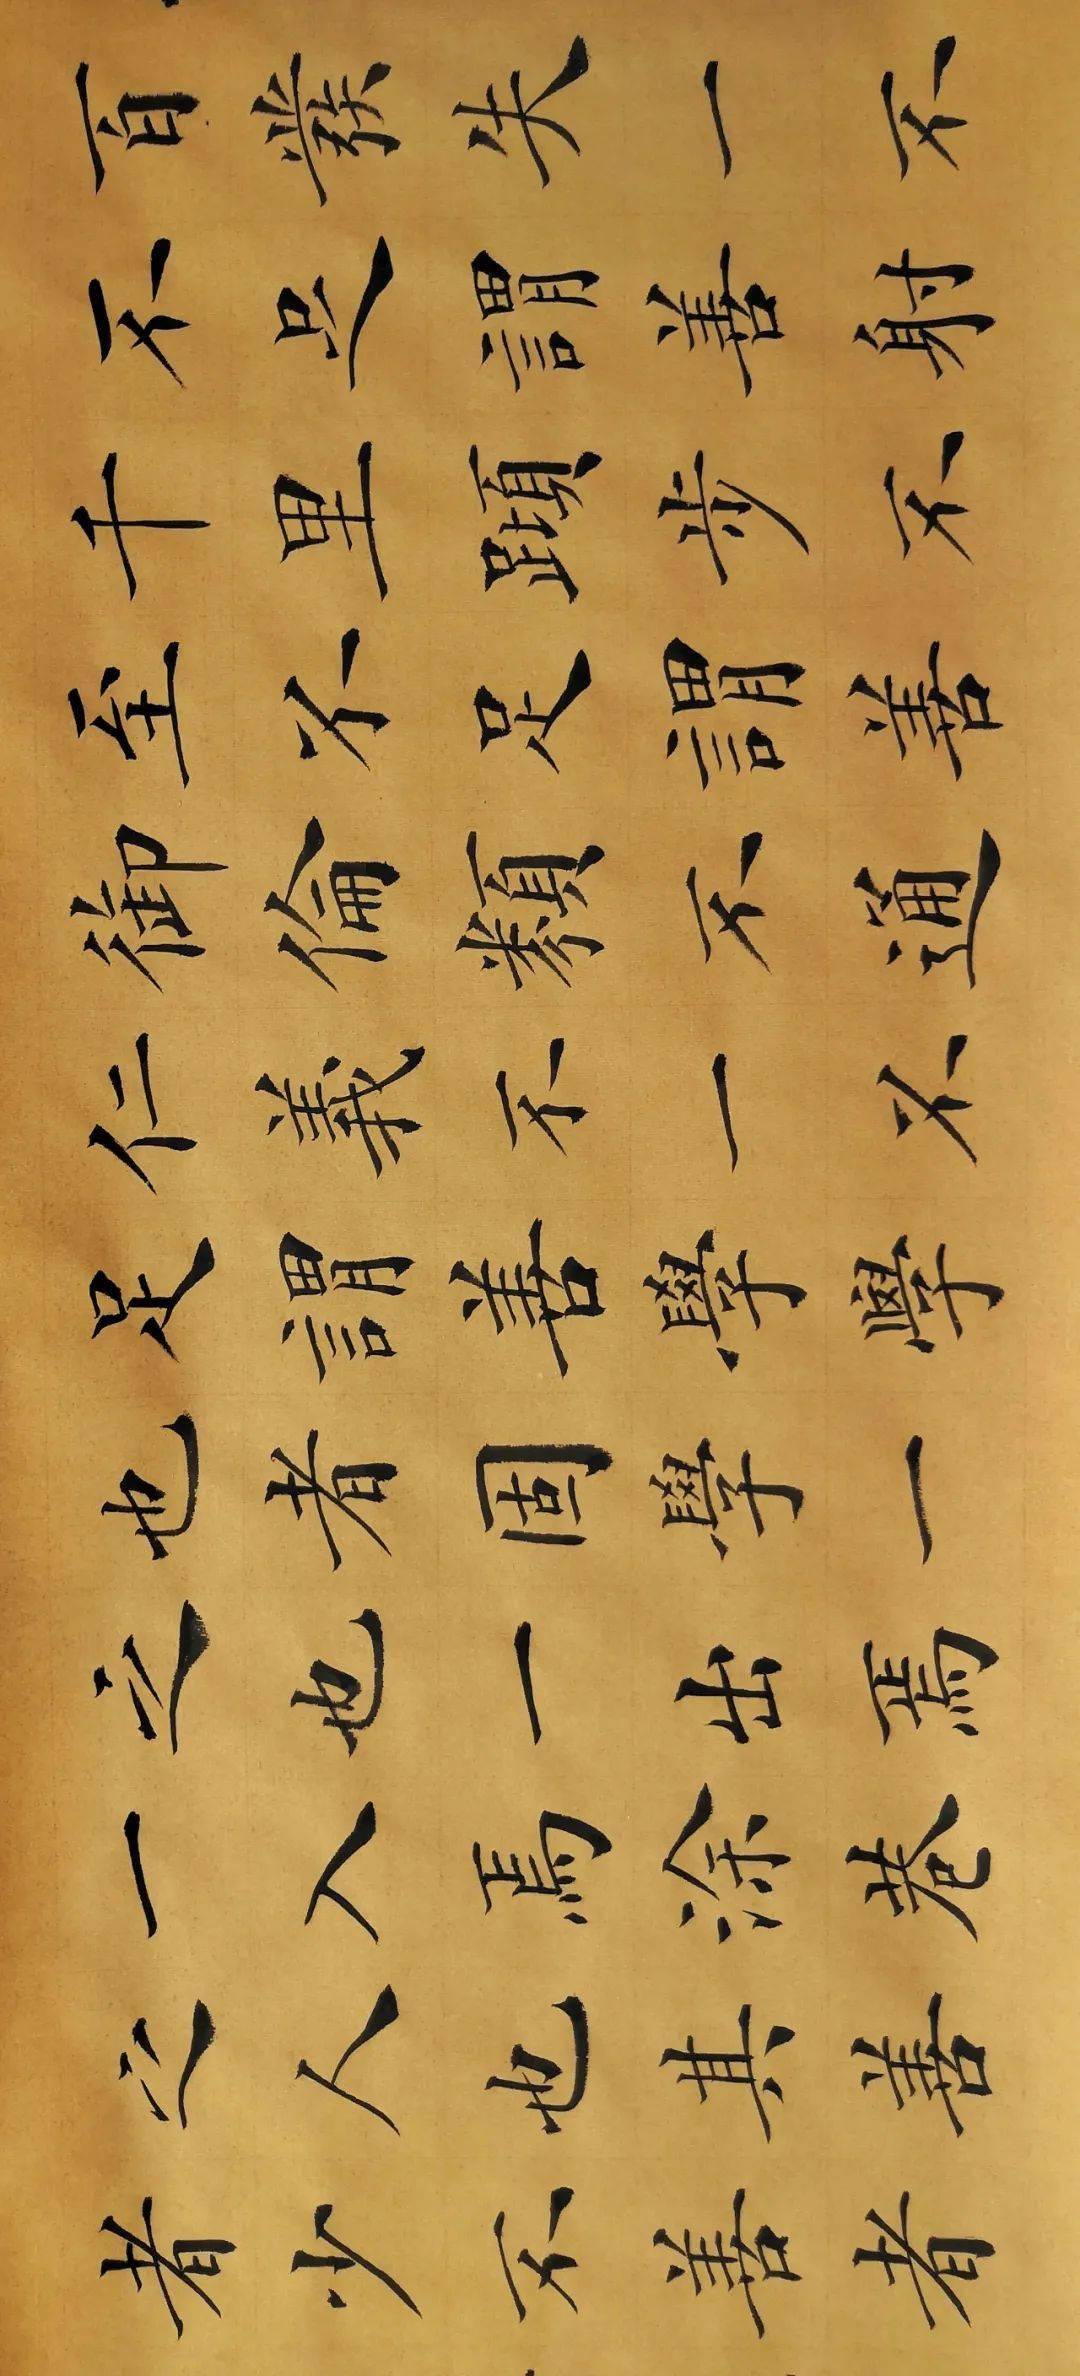 百發失一不
不足謂善射
千里蹞步不
至不足謂善
御倫類不通
仁義不一不
足謂善學學
也者固學一
之也一出焉
一入焉涂巷
之人也其善
者少不善者